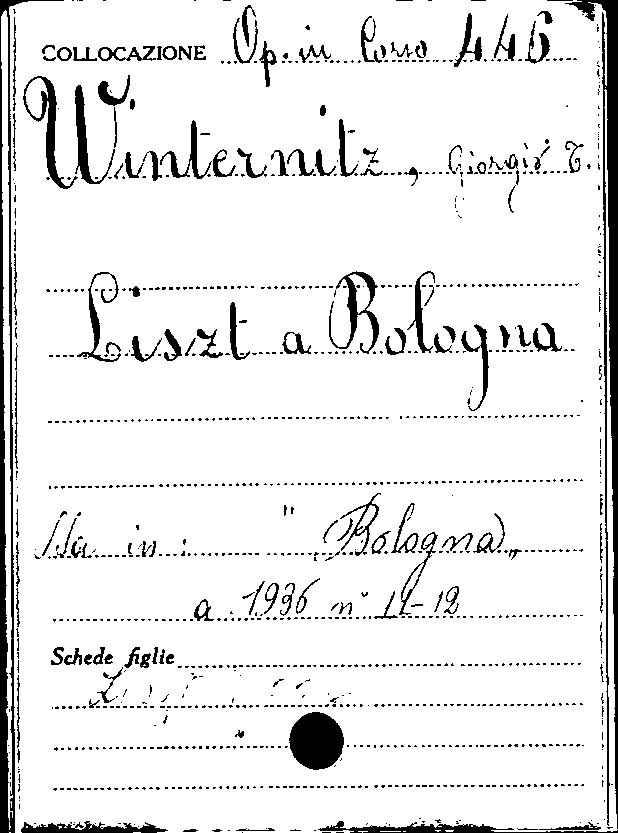 COLLOCAZIONE Op. in Corso 446
Winternitz, Giorgio T.
Liszt a Bologna
Sta in: "Bologna"
a. 1936 n° 11-12
Schede figlie
Liszt